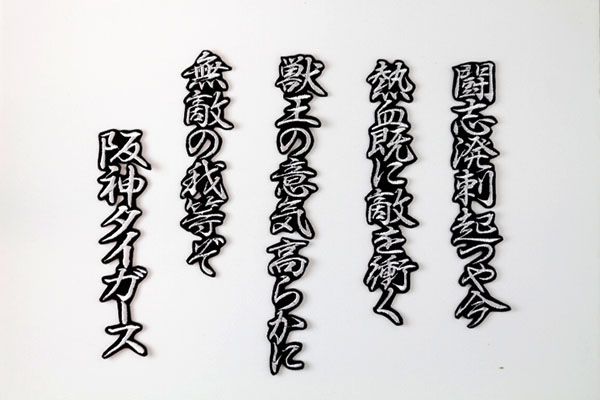 闘志溌剌起つや今
熱血既に敵を衝く
獣王の意気高らかに
無敵の我等ぞ
阪神タイガース